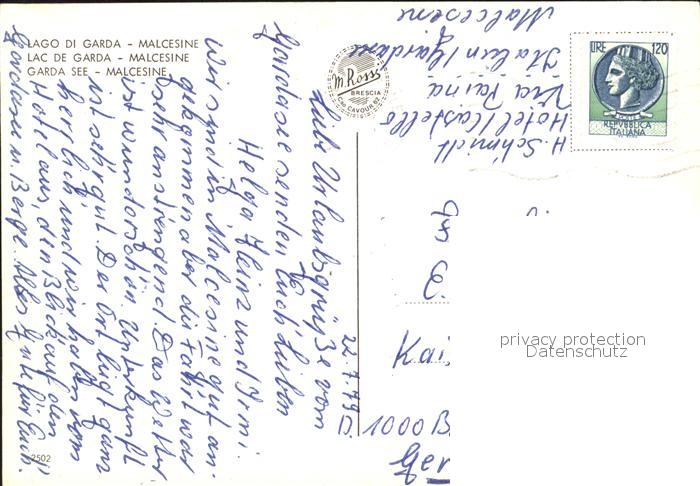 LAGO DI GARDA - MALCESINE
LAC DE GARDA - MALCESINE
GARDA SEE - MALCESINE
m.Ross
BRESCIA
C.so CAVOUR 52
LIRE 120
REPUBBLICA
ITALIANA
H. Schmidt
Hotel Castello
Via Paina
Italien / Gardasee
Malcesine
22.7.79
Liebe Urlaubsgrüße vom
Gardasee senden Euch Lieben
Helga Heinz und Irmi.
Wir sind in Malcesine gut an-
gekommen aber die Fahrt war
sehr anstrengend. Das Wetter
ist wunderschön. Unterkunft
ist sehr gut. Der Ort liegt ganz
herrlich und wir haben vom
Hotel aus, den Blick auf den
Gardasee u. Berge. Alles Gute für Euch.
Kai
1000 B
Ger
2502
privacy protection
Datenschutz